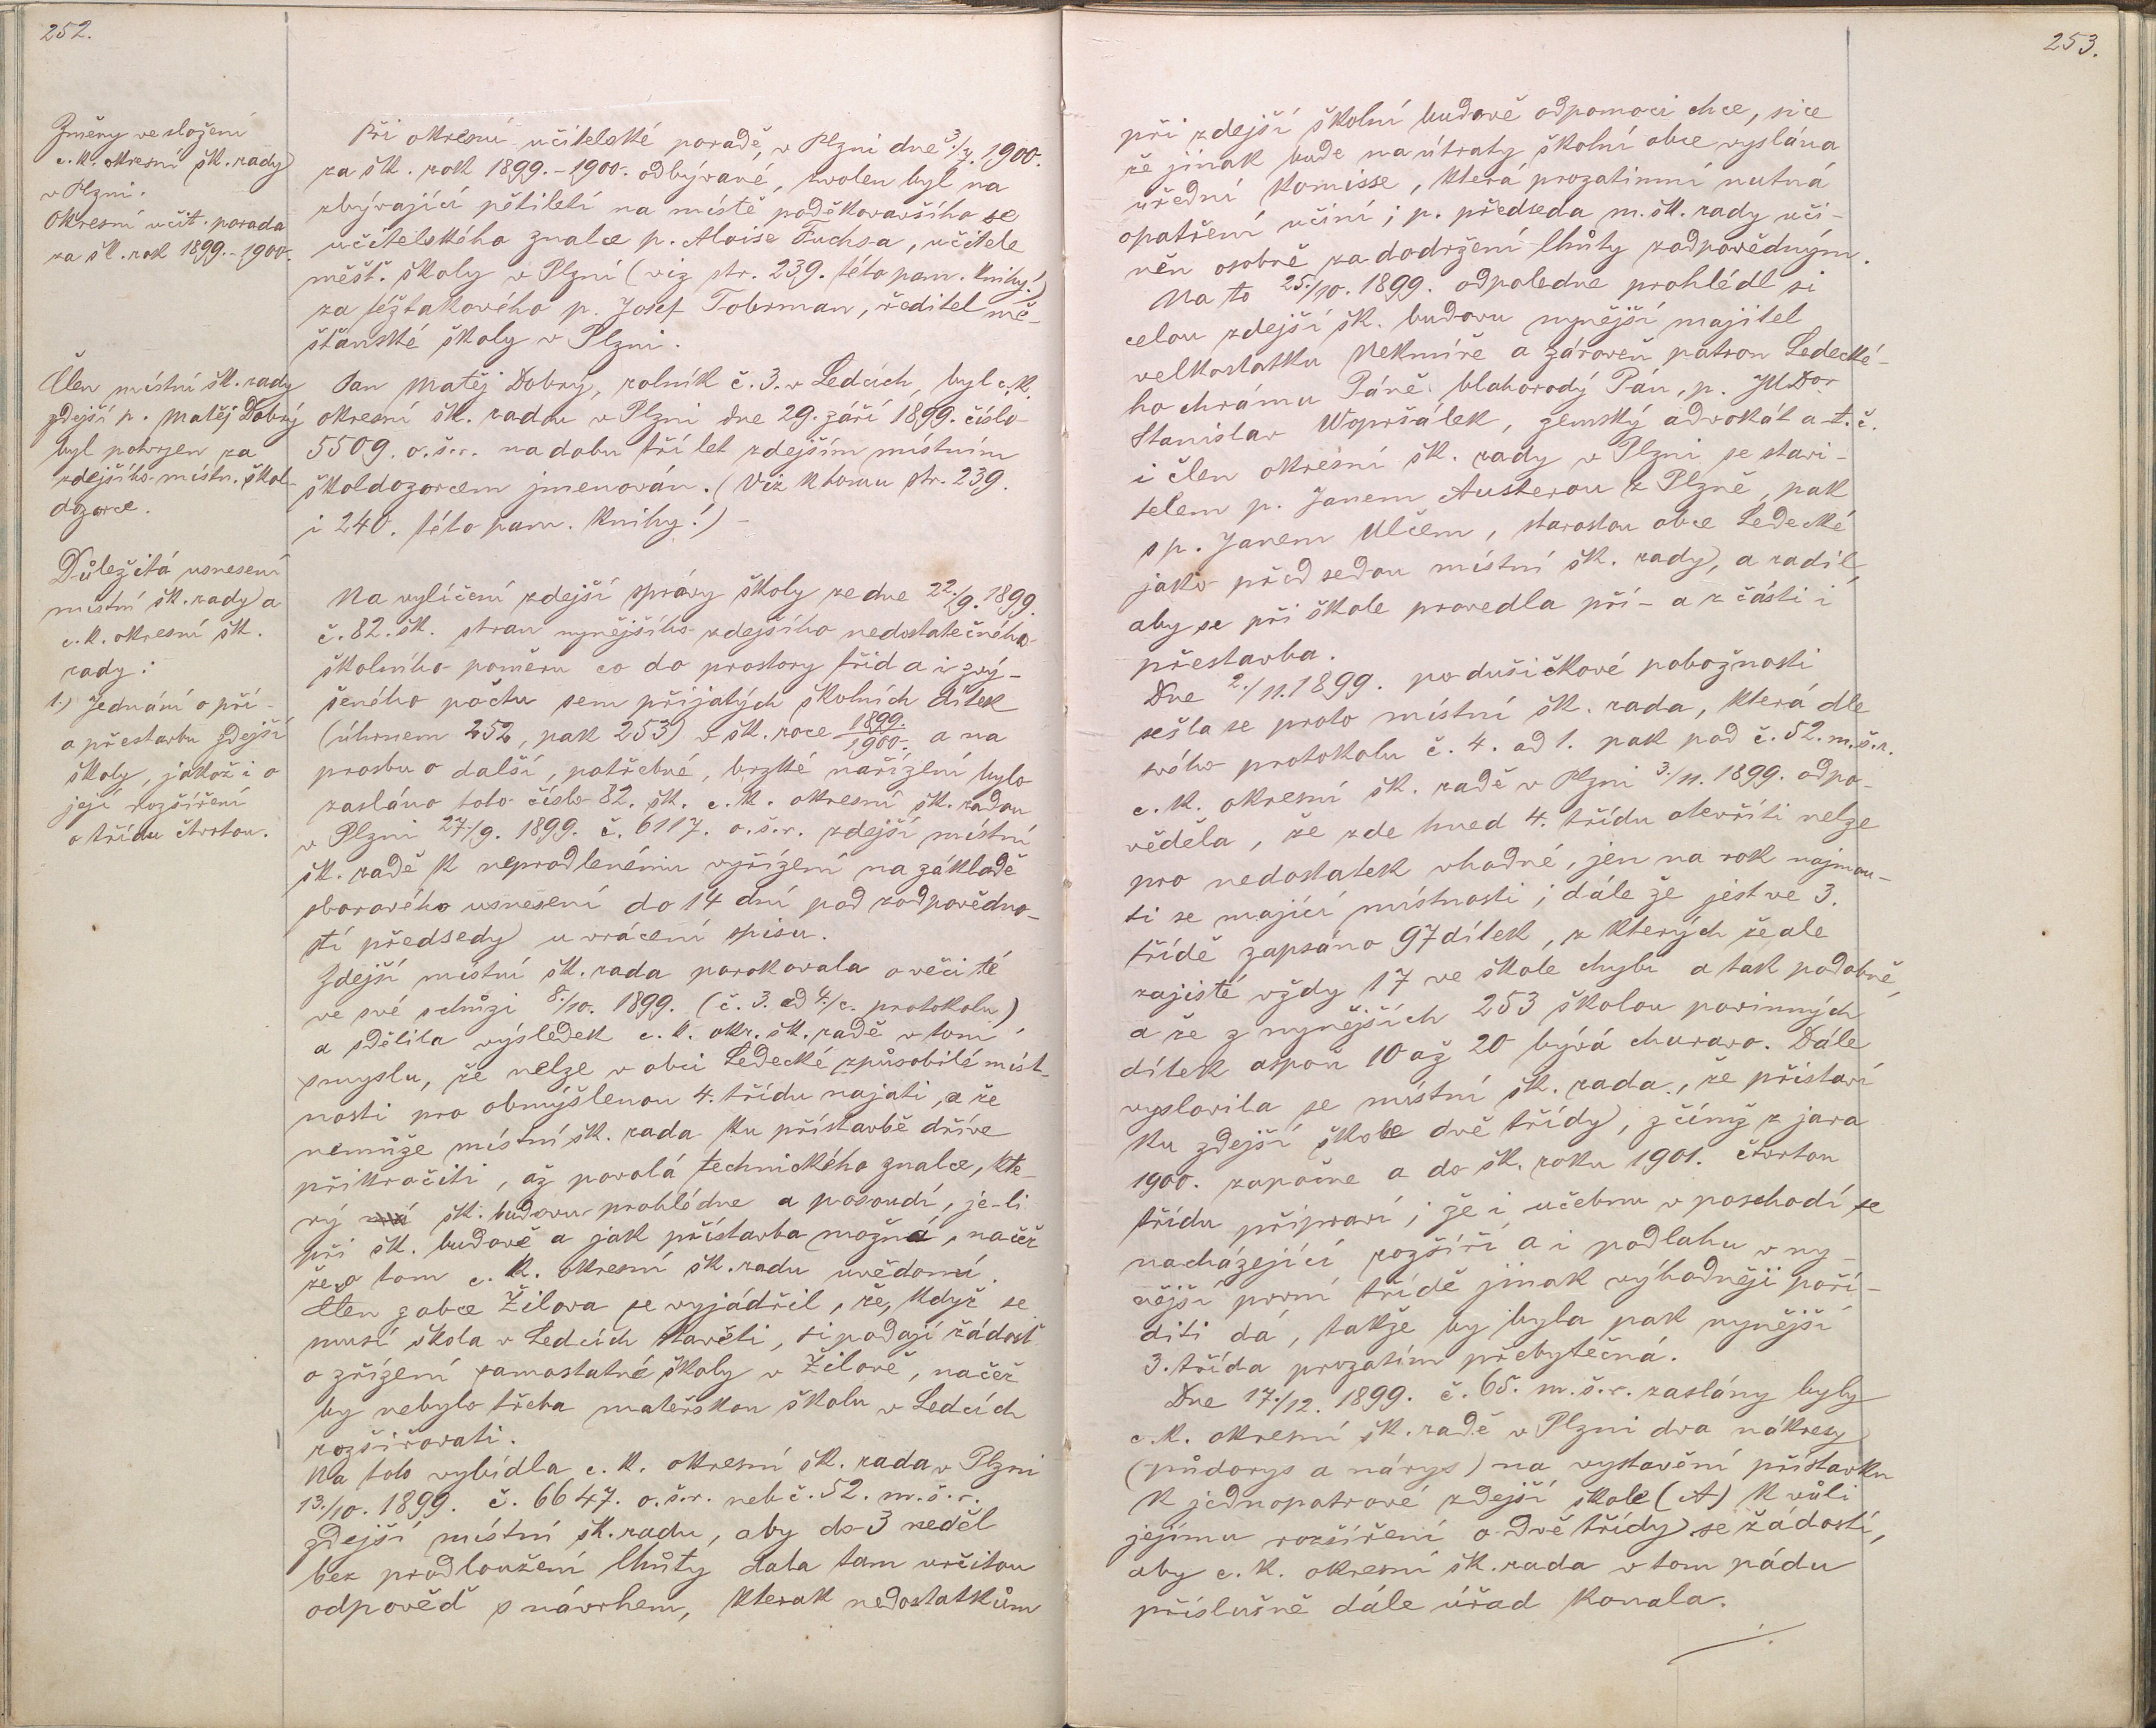 252.
Změny ve složení
c. k. okresní šk. rady
v Plzni.
Okresní učit. porada
za šk. rok 1899.-1900.
Při okresní učitelské poradě, v Plzni dne 3./7. 1900.
za šk. rok 1899.-1900. odbývané, zvolen byl na
zbývající pětiletí na místě poděkovavšího se
učitelského znalce p. Aloise Fuchsa, učitele
měšť. školy v Plzni (viz str. 239. této pam. knihy!)
za téžtakového p. Josef Toberman, ředitel mě-
šťanské školy v Plzni.
Člen místní šk. rady
zdejší p. Matěj Dobrý
byl potvrzen za
zdejšího místn. škol-
dozorce.
Pan Matěj Dobrý, rolník č. 3. v Ledcích, byl c. k.
okresní šk. radou v Plzni dne 29. září 1899. číslo
5509. o. š. r. na dobu tří let zdejším místním
školdozorcem jmenován. (Viz k tomu str. 239.
i 240. této pam. knihy!) -
Důležitá usnesení
místní šk. rady a
c. k. okresní šk.
rady:
1.) Jednání o pří-
a přestavbu zdejší
školy, jakož i o
její rozšíření
o třídu čtvrtou.
Na vylíčení zdejší správy školy ze dne 22./9. 1899.
č. 82. šk. stran nynějšího zdejšího nedostatečného
školního poměru co do prostory tříd a i zvý-
šeného počtu sem přijatých školních dítek
(úhrnem 252, pak 253) v šk. roce 1899./1900. a na
prosbu o další, potřebné, brzké nařízení bylo
zasláno toto číslo 82. šk. c. k. okresní šk. radou
v Plzni 27./9. 1899. č. 6117. o. š. r. zdejší místní
šk. radě k neprodlenému vyřízení na základě
sborového usnesení do 14 dní pod zodpovědno-
stí předsedy u vrácení spisu.
Zdejší místní šk. rada porokovala o věci té
ve své schůzi 8./10. 1899. (č. 3. ad 4./c. protokolu)
a sdělila výsledek c. k. okr. šk. radě v tom
smyslu, že nelze v obci Ledecké způsobilé míst-
nosti pro obmýšlenou 4. třídu najati, a že
nemůže místní šk. rada ku přístavbě dříve
přikročiti, až povolá technického znalce, kte-
rý šk. budovu prohlédne a posoudí, je-li
při šk. budově a jak přístavba možná, načež
že o tom c. k. okresní šk. radu uvědomí.
Člen z obce Žilova se vyjádřil, že, když se
musí škola v Ledcích stavěti, si podají žádost
o zřízení samostatné školy v Žilově, načež
by nebylo třeba mateřskou školu v Ledcích
rozšiřovati.
Na toto vybídla c. k. okresní šk. rada v Plzni
13./10. 1899. č. 6647. o. š. r. neb č. 52. m. š. r.
zdejší místní šk. radu, aby do 3 neděl
bez prodloužení lhůty dala tam určitou
odpověď s návrhem, kterak nedostatkům
253.
při zdejší školní budově odpomoci chce, sice
že jinak bude na útraty školní obce vyslána
úřední komisse, která prozatimní nutná
opatření učiní; p. předseda m. šk. rady uči-
něn osobně za dodržení lhůty zodpovědným.
Na to 25./10. 1899. odpoledne prohlédl si
celou zdejší šk. budovu nynější majitel
velkostatku Nekmíře a zároveň patron Ledecké-
ho chrámu Páně blahorodý Pán, p. JUDor
Stanislav Wopršálek, zemský advokát a t. č.
i člen okresní šk. rady v Plzni se stavi-
telem p. Janem Austerou z Plzně, pak
s p. Janem Ulčem, starostou obce Ledecké
jako předsedou místní šk. rady, a radil,
aby se při škole provedla pří- a z části i
přestavba.
Dne 2./11. 1899. po dušičkové pobožnosti
sešla se proto místní šk. rada, která dle
svého protokolu č. 4. ad 1. pak pod č. 52. m. š. r.
c. k. okresní šk. radě v Plzni 3./11. 1899. odpo-
věděla, že zde hned 4. třídu otevříti nelze
pro nedostatek vhodné, jen na rok najmou-
ti se mající místnosti; dále že jest ve 3.
třídě zapsáno 97 dítek, z kterých že ale
zajisté vždy 17 ve škole chybí a tak podobně,
a že z nynějších 253 školou povinných
dítek aspoň 10 až 20 bývá churavo. Dále
vyslovila se místní šk. rada, že přistaví
ku zdejší škole dvě třídy, z čímž z jara
1900. započne a do šk. roku 1901. čtvrtou
třídu připraví; že i učebnu v poschodí se
nacházející rozšíří a i podlahu v ny-
nější první třídě jinak výhodněji poří-
diti dá, takže by byla pak nynější
3. třída prozatím přebytečná.
Dne 17./12. 1899. č. 65. m. š. r. zaslány byly
c. k. okresní šk. radě v Plzni dva nákresy
(půdorys a nárys) na vystavění přístavku
k jednopatrové zdejší škole (A) k vůli
jejímu rozšíření o dvě třídy se žádostí,
aby c. k. okresní šk. rada v tom pádu
příslušně dále úřad konala.
./.